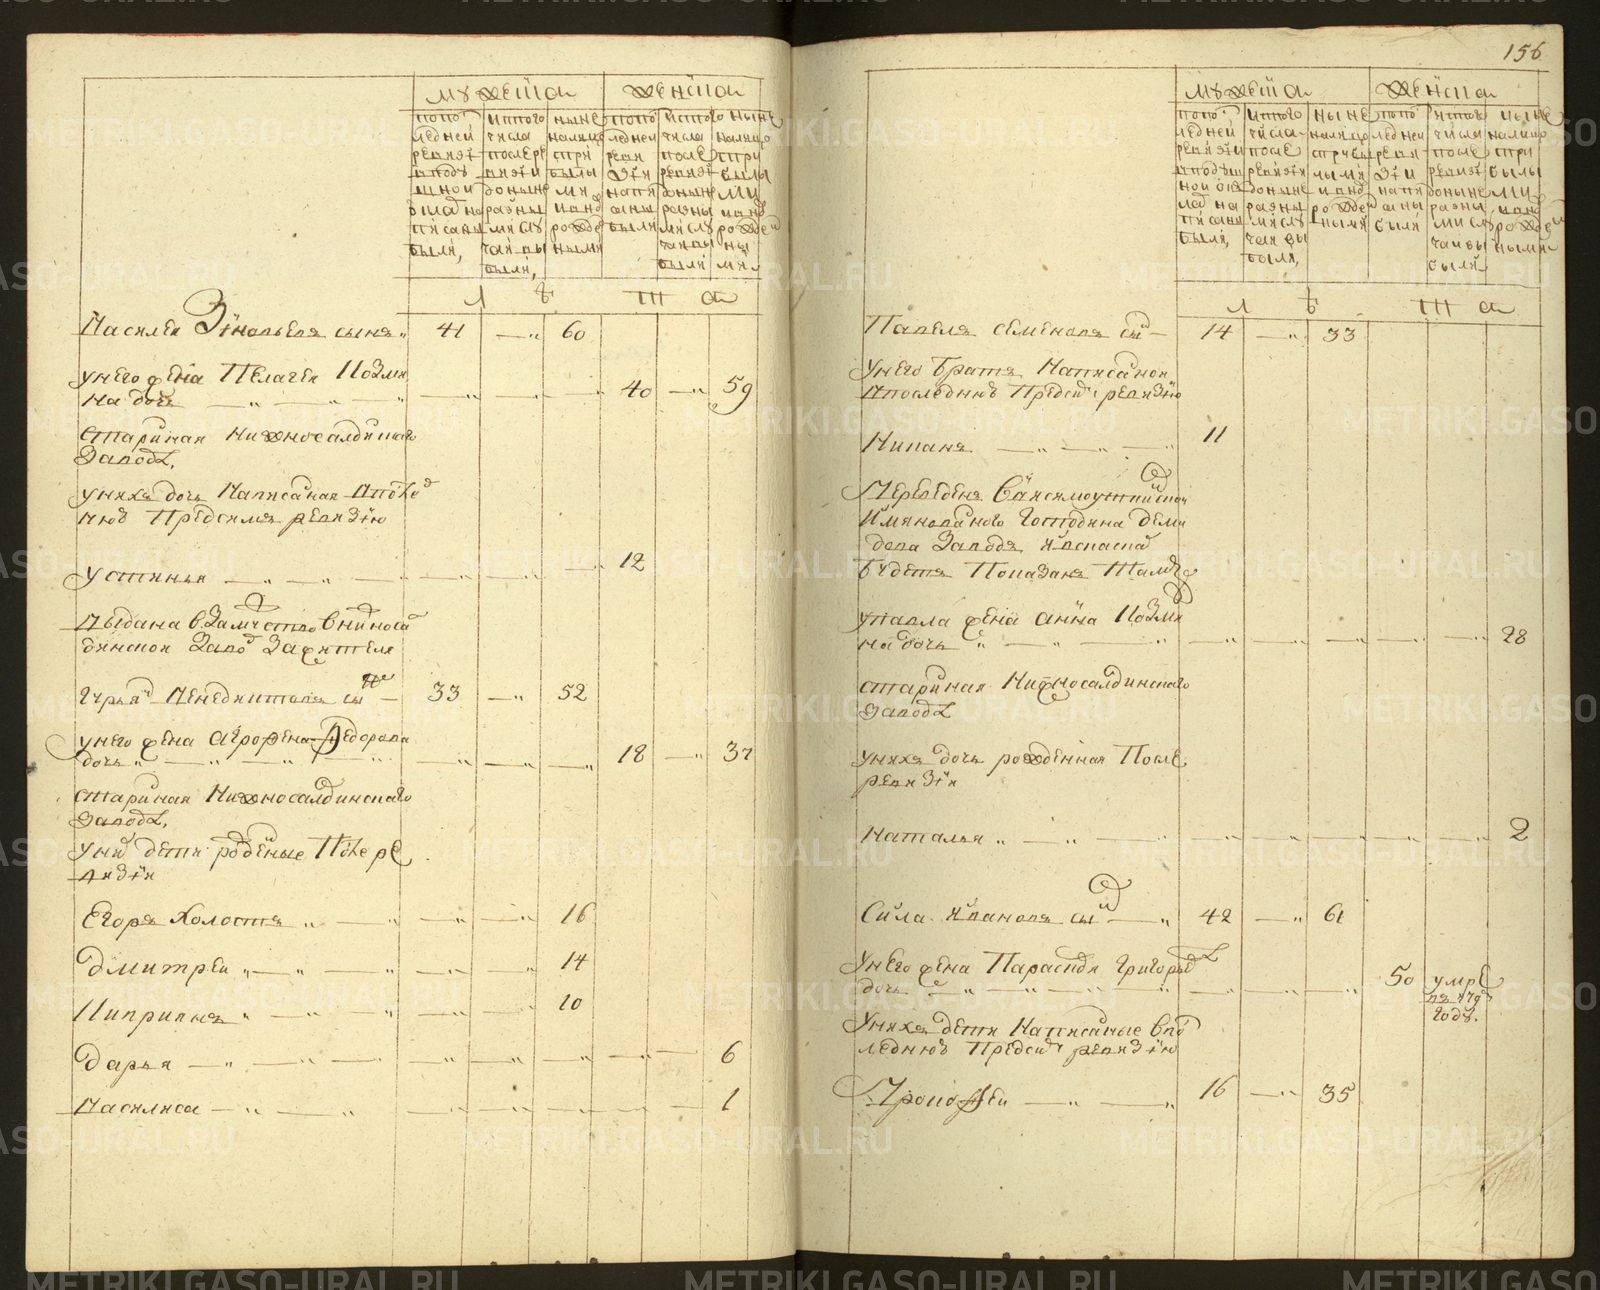 156
мужеска
женска
попо следней ревизiи вподушной окладъ написаны были,
изтого числа послере визiи доныне разными случаи вы были,
ныне налицо спри былыми ивновь рожде нными
попо следней реви зiи напи саны были
изтого числа после ревизiи доныне разны ми слу чаи вы были
ныне налицо спри былы ми ивновь рожде нны ми
л ѣ т а
Василей Зиновьевъ сынъ 41 — 60
унего жена Пелагея Козми
на дочь 40 — 59
старинная Нижносалдинскаго
Завода,
унихъ дочь Написанная впослед
нюю Предсимъ ревизiю
устинья 12
Выдана взамужство внижноса
динской завод зажителя
Гурья Венедиктовъ сын 33 — 52
унего жена агрофена Федорова
дочь 18 — 37
старинная Нижносалдинскаго
завода,
уних дети рожденые После ре
визiи
Егоръ Холостъ 16
Дмитрей 14
Киприянъ 10
Дарья 6
Василиса 1
мужеска
женска
попо следней ревизiи вподуш ной окладъ написаны были,
изтого числа после ревизiи доныне разны ми слу чаи вы были,
ныне налицо сприбы лыми ивновь рожде ными
попо следней реви зiи напи саны были
изтого числа после ревизiи доныне разны ми слу чаи вы были
ныне налицо спри былы ми ивновь рожде ными
л ѣ т а
Павелъ семеновъ сын 14 — 33
унего братъ Написанной
впоследнюю Предсим ревизiю
11
Переведенъ
имянованого Господина деми
дова Завода
будетъ Показанъ Тамже
упавла жена анна Козми
на дочь 28
старинная Нижносалдинскаго
завода
унихъ дочь рожденная После
ревизiи
Наталья 2
Сила ивановъ сын 42 — 61
унего жена Парасковя григорьева
дочь 50 умре
ла 179
году.
унихъ дети Написаные впо
следнюю Предсим ревизiю
Прокофей 16 — 35